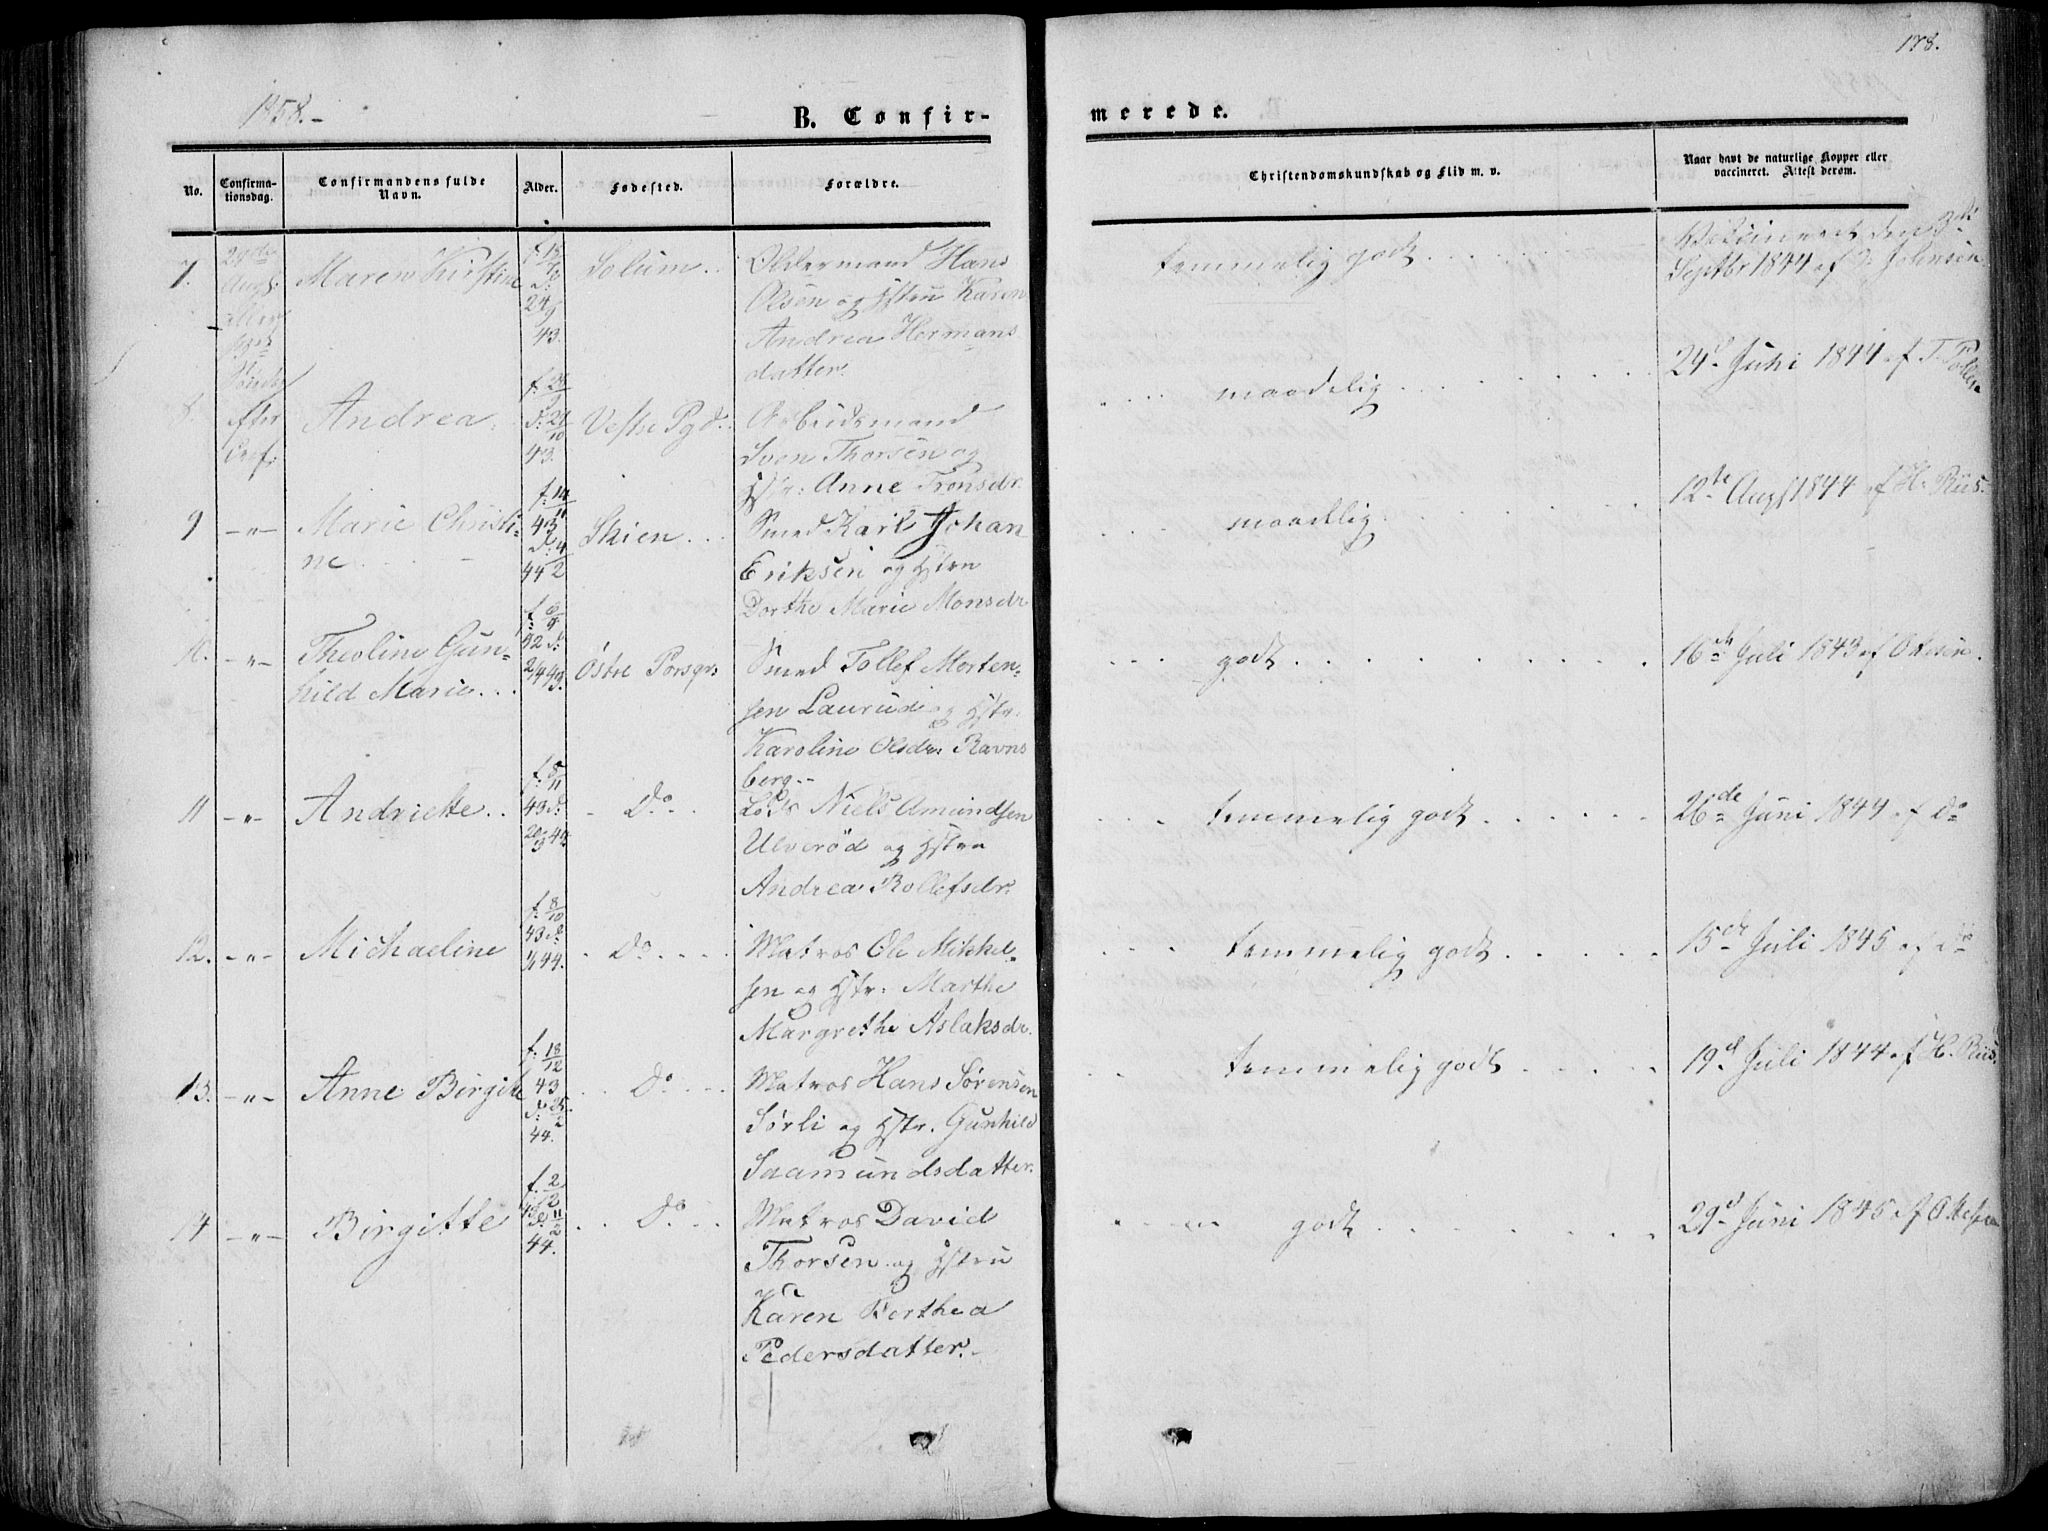 178.
1858.-
B. Confir-
merede.
No.
Confirma-
tionsdag.
Confirmandens fulde
Navn.
Alder.
Fødested.
Forældre.
Christendomskundskab og Flid m. v.
Naar havt de naturlige Kopper eller
vaccineret. Attest derom.
7.
29de
Aug.
Søndag
efter
Maren Kirstine
24/9
43.
Solum..
Oldermand Hans
Olsen og Hstru Karen
Andrea Hermans
datter.
temmelig godt ......
Vaccineret den 3di
Septbr 1844 af D. Johnsen.
8.
Andrea.
43.
Vestre Pgd.
Arbeidsmand
Sven Thorsen og
Hstr: Anne Tronsdr.
.... maadelig .........
24d Juni 1844 af
9
-"-
Marie Christi-
ne
f: 14/11
43
d: 4/2
44
Skien...
Smed Karl Johan
Eriksen og Hstru
Dorthe Marie Monsdr
.. maadelig .......
12te Aug 1844 af H. Riis.
10.
-"-
Theoline Gun-
hild Marie...
f: 6/9
42 d:
2/4 43.
Østre Porsgr.
Smed Tollef Morten-
sen Laurud og Hstr:
Karoline Olsdr. Ravns
berg.-
... godt..........
16de Juli 1843 af Ottesen.
11
-"-
Andriette..
f. 5/11
43 d:
20/3 44
- Do.
Lods Niels Amundsen
Ulverød og Hstru
Andrea Rollefsdr.
... temmelig godt ......
26de Juni 1844 af Do
12.
-"-
Michaeline
f: 8/10
43 d:
44.
. Do....
Matros Ole Mikkel-
sen og Hstr: Marthe
Margrethe Aslaksdr.
... temmelig godt .....
15de Juli 1845 af Do
13.
-"-
Anne Birgitte
f: 18/12
43
d: 25/2
44.
.. Do...
Matros Hans Sørensen
Sørli og Hstr. Gunhild
Saamundsdatter.
.. temmelig godt .....
19d Juli 1844 af H. Riis
14
-"-
Birgitte
f. 2/12
43 d: 11/2
44.
.. Do..
Matros David
Thorsen og Hstru
Karen Berthea
Pedersdatter.-
.... godt .......
29d Juni 1845 af Ottesen